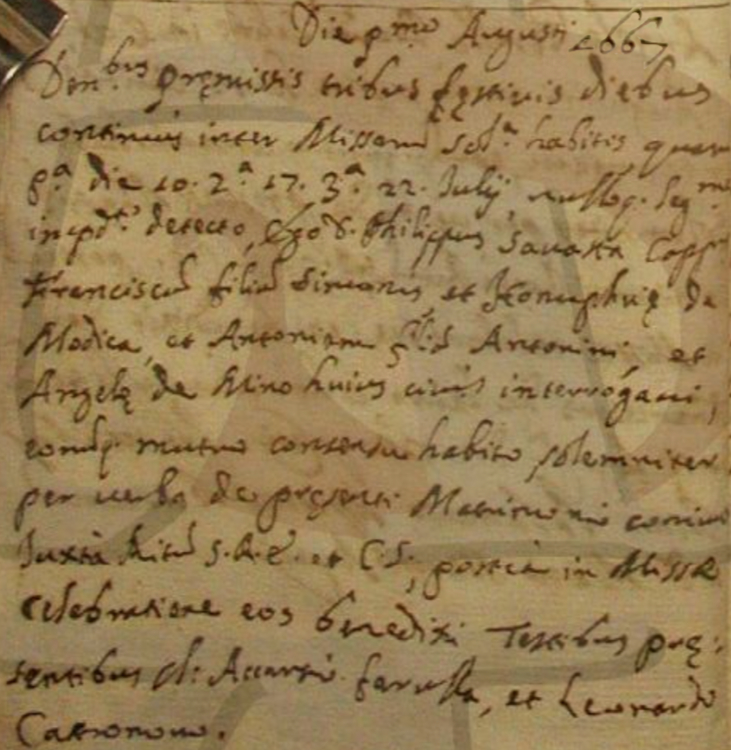 Die p.mo Augusti 1667
Den.bus pręmissis tribus fęstiuis diebus
continuis inter Missarū sol.a habitis, quarū
p.a die 10. 2.a 17. 3.a 22. Julij, nulloq. leg.mo
impd.to detecto, Ego D. Philippus Sauatta Capp.s
Franciscū filiū Simonis, et Honuphrię de
Modica, et Antoniam filiā Antonini, et
Angelę de Miro huius ciuit interrogaui,
eorūq. mutuo consensu habito solemniter
per uerba de pręsenti Matrimonio coniuxi
Juxta Ritū S.R.E. et C.S., postea in Missę
celebratione eos benedixi Testibus prę:
sentibus cl: Accursio farulla, et Leonardo
Castronouo.